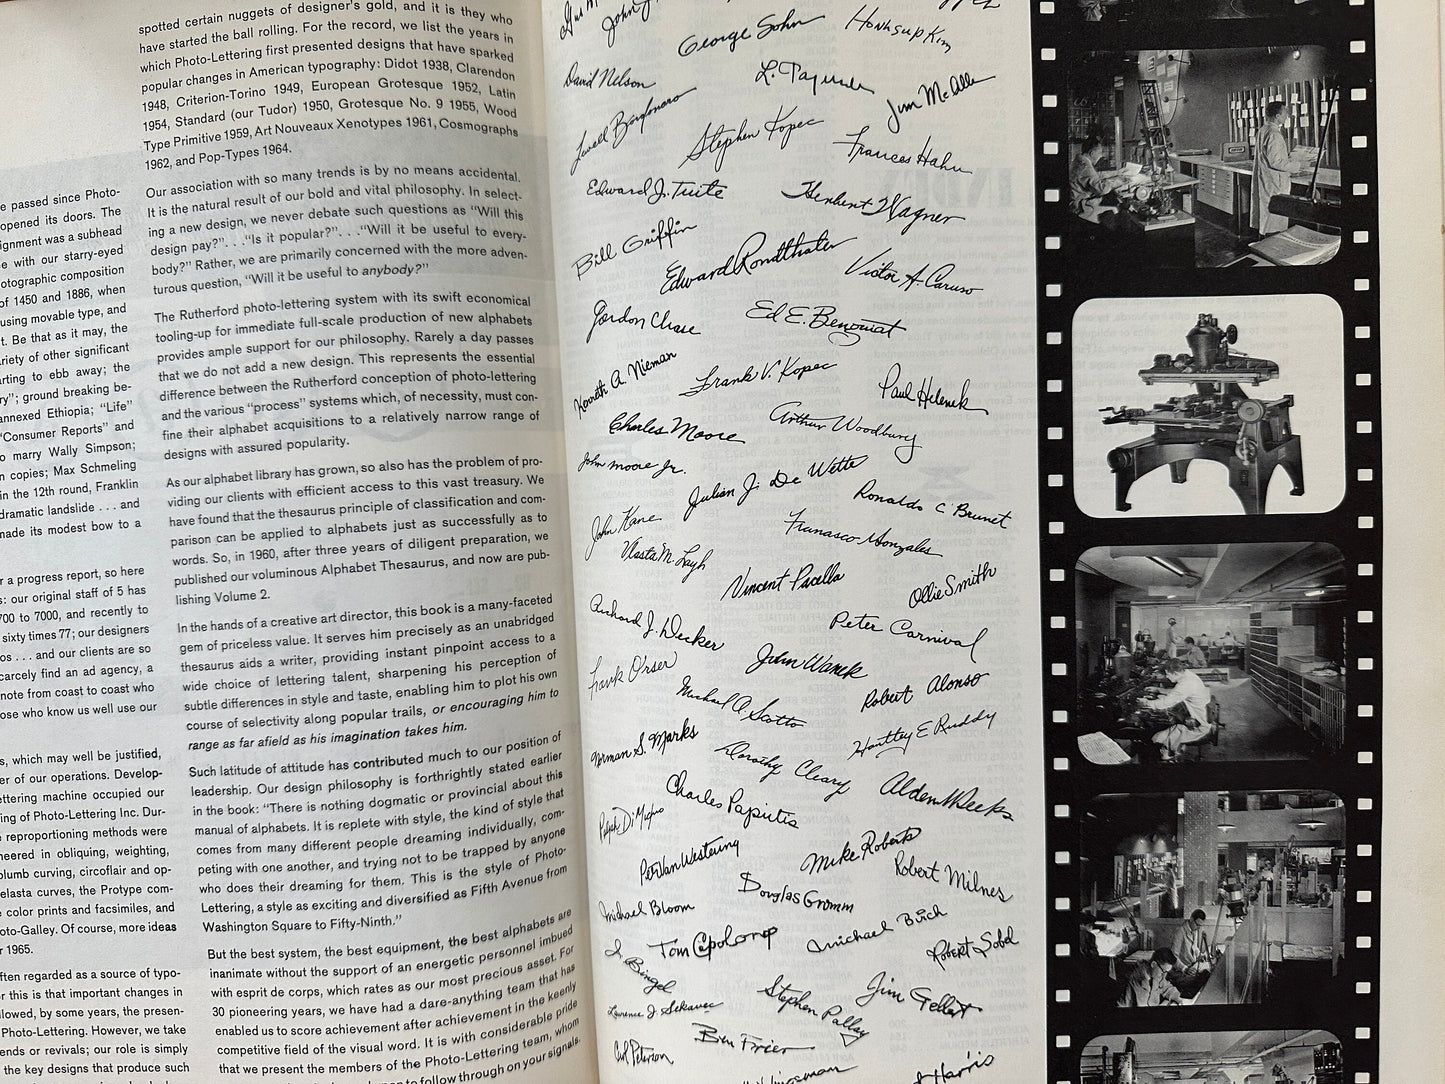 e passed since Photo-
opened its doors. The
ignment was a subhead
e with our starry-eyed
otographic composition
of 1450 and 1886, when
using movable type, and
t. Be that as it may, the
riety of other significant
arting to ebb away; the
ry"; ground breaking be-
annexed Ethiopia; "Life"
"Consumer Reports" and
o marry Wally Simpson;
n copies; Max Schmeling
in the 12th round, Franklin
dramatic landslide . . . and
made its modest bow to a
r a progress report, so here
s: our original staff of 5 has
700 to 7000, and recently to
sixty times 77; our designers
os . . . and our clients are so
carcely find an ad agency, a
note from coast to coast who
ose who know us well use our
s, which may well be justified,
er of our operations. Develop-
ettering machine occupied our
ing of Photo-Lettering Inc. Dur-
e reproportioning methods were
neered in obliquing, weighting,
plumb curving, circoflair and op-
elasta curves, the Protype com-
e color prints and facsimiles, and
oto-Galley. Of course, more ideas
r 1965.
ften regarded as a source of typo-
r this is that important changes in
llowed, by some years, the presen-
Photo-Lettering. However, we take
ends or revivals; our role is simply
the key designs that produce such
spotted certain nuggets of designer's gold, and it is they who
have started the ball rolling. For the record, we list the years in
which Photo-Lettering first presented designs that have sparked
popular changes in American typography: Didot 1938, Clarendon
1948, Criterion-Torino 1949, European Grotesque 1952, Latin
1954, Standard (our Tudor) 1950, Grotesque No. 9 1955, Wood
Type Primitive 1959, Art Nouveaux Xenotypes 1961, Cosmographs
1962, and Pop-Types 1964.
Our association with so many trends is by no means accidental.
It is the natural result of our bold and vital philosophy. In select-
ing a new design, we never debate such questions as "Will this
design pay?". . ."Is it popular?". . ."Will it be useful to every-
body?" Rather, we are primarily concerned with the more adven-
turous question, "Will it be useful to anybody?"
The Rutherford photo-lettering system with its swift economical
tooling-up for immediate full-scale production of new alphabets
provides ample support for our philosophy. Rarely a day passes
that we do not add a new design. This represents the essential
difference between the Rutherford conception of photo-lettering
and the various "process" systems which, of necessity, must con-
fine their alphabet acquisitions to a relatively narrow range of
designs with assured popularity.
As our alphabet library has grown, so also has the problem of pro-
viding our clients with efficient access to this vast treasury. We
have found that the thesaurus principle of classification and com-
parison can be applied to alphabets just as successfully as to
words. So, in 1960, after three years of diligent preparation, we
published our voluminous Alphabet Thesaurus, and now are pub-
lishing Volume 2.
In the hands of a creative art director, this book is a many-faceted
gem of priceless value. It serves him precisely as an unabridged
thesaurus aids a writer, providing instant pinpoint access to a
wide choice of lettering talent, sharpening his perception of
subtle differences in style and taste, enabling him to plot his own
course of selectivity along popular trails, or encouraging him to
range as far afield as his imagination takes him.
Such latitude of attitude has contributed much to our position of
leadership. Our design philosophy is forthrightly stated earlier
in the book: "There is nothing dogmatic or provincial about this
manual of alphabets. It is replete with style, the kind of style that
comes from many different people dreaming individually, com-
peting with one another, and trying not to be trapped by anyone
who does their dreaming for them. This is the style of Photo-
Lettering, a style as exciting and diversified as Fifth Avenue from
Washington Square to Fifty-Ninth."
But the best system, the best equipment, the best alphabets are
inanimate without the support of an energetic personnel imbued
with esprit de corps, which rates as our most precious asset. For
30 pioneering years, we have had a dare-anything team that has
enabled us to score achievement after achievement in the keenly
competitive field of the visual word. It is with considerable pride
that we present the members of the Photo-Lettering team, whom
to follow through on your signals.
George Sohn
Honksup Kim
David Nelson
Jim McAlle
Stephen Kopec
Frances Hahn
Edward J. Tuite
Herbert Wagner
Bill Griffin
Edward Rondthaler
Victor A. Caruso
Gordon Chase
Ed E. Benguiat
Kenneth A. Nieman
Frank V. Kopec
Paul Helenek
Charles Moore
Arthur Woodbury
John Moore Jr.
Julian J. De Wette
Ronaldo C Brunet
John Kane
Vlasta M. Lagh
Vincent Pacella
Ollie Smith
Richard J. Decker
Peter Carnival
Frank Orser
John Wanek
Michael A. Scotto
Robert Alonso
Norman S. Marks
Dorothy Cleary
Hartley E Ruddy
Charles Papirtis
Alden Weeks
Mike Roberts
Peter Van Westering
Robert Milnes
Douglas Gramm
Michael Bloom
Michael Birch
Tom
Robert Sobel
J. Bingel
Jim Gellert
Stephen Palley
Ben Frier
Carl Peterson
Harris